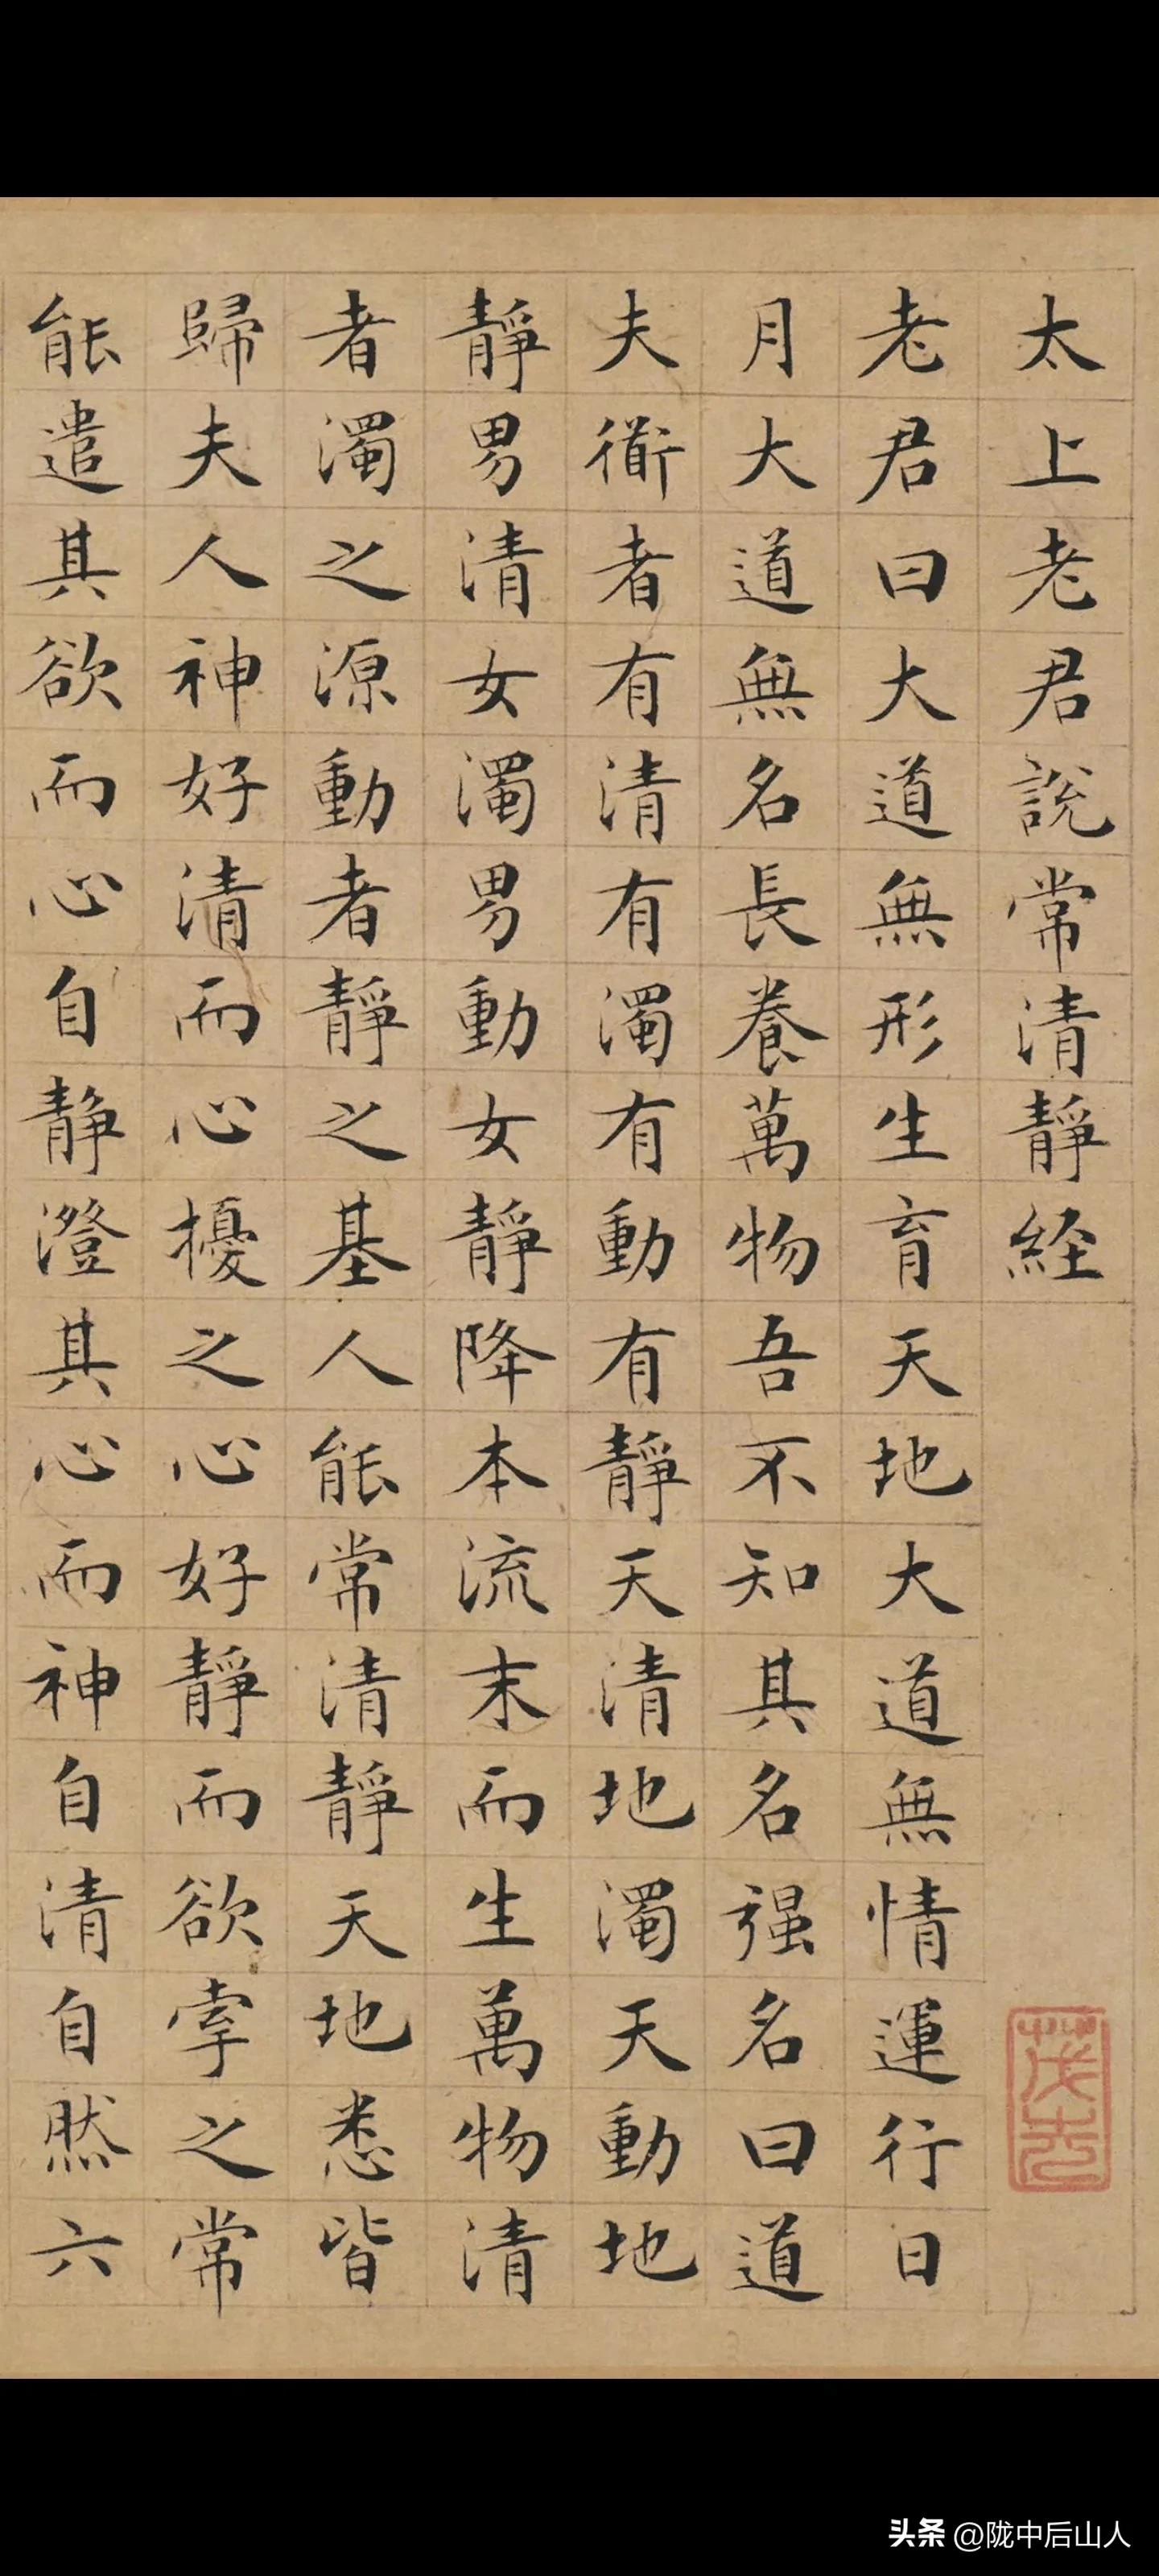 太上老君說常清靜経
老君曰大道無形生育天地大道無情運行日
月大道無名長養萬物吾不知其名强名曰道
夫衜者有清有濁有動有靜天清地濁天動地
靜男清女濁男動女靜降本流末而生萬物清
者濁之源動者靜之基人能常清靜天地悉皆
歸夫人神好清而心擾之心好靜而欲牽之常
能遣其欲而心自静澄其心而神自清自然六
頭条 @陇中后山人